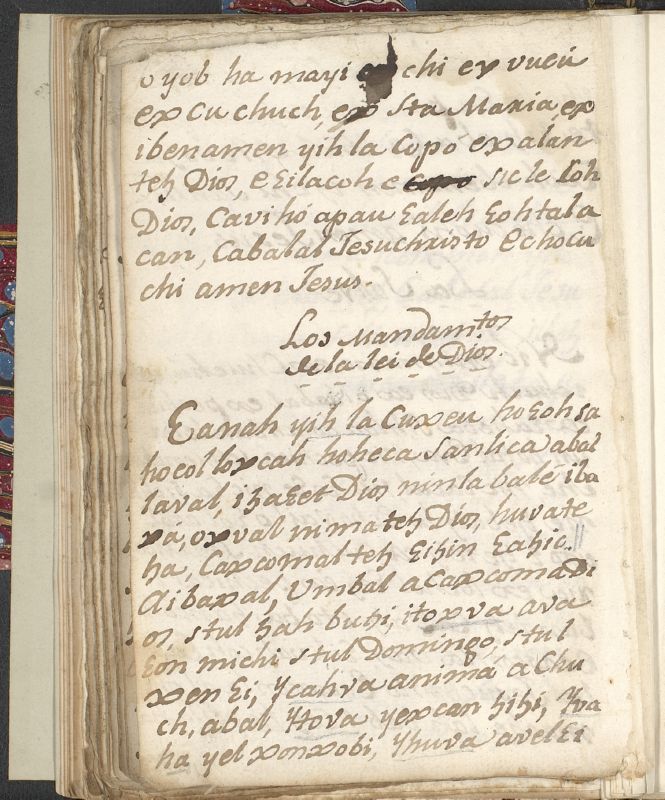 o yob ha mayi chi ex vucu
ex cu chuch, ex Sta Maria, ex
ibenamen yih la Copó ex alan
teh Dios, e Eilacoh e copo sicle loh
Dios, Cavihó apau Ealeh Eohtala
can, Cabalal Jesuchristo Echocu
chi amen Jesus.
Los Mandamtos
de la lei de Dios.
Eanah yih la Cuxeu hoEohsa
hocol loxcah hoheca Sanlica abal
laval, ihaEet Dios ninla balé iba
xá, oxval nimateh Dios, huvate
ha, Caxcomal teh Eihin Eahic.
Aibaxal, Umbal a Caxcoma Di
os, stul hah buhi, itoxva ava
Eon michi stul Domingo, stul
xen Ei, Ycahva animá a Chu
ch, abal, Ytova yexcan hihi, Yva
ha yel xonxobi, Yhuva avel Ei